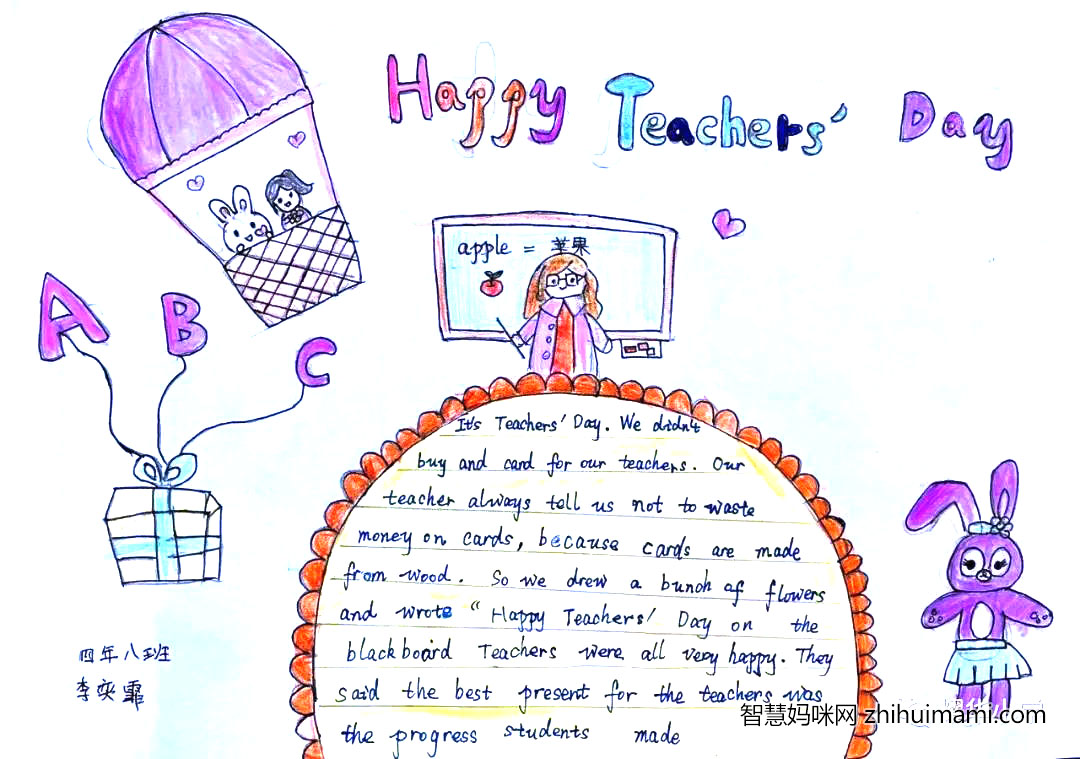 Happy Teachers' Day
apple = 苹果
A
B
C
It's Teachers' Day. We didn't
buy and card for our teachers. Our
teacher always tell us not to waste
money on cards, because cards are made
from wood. So we drew a bunch of flowers
and wrote "Happy Teachers' Day on the
blackboard Teachers were all very happy. They
said the best present for the teachers was
the progress students made
四年八班
李
智慧妈咪网 zhihuimami.com